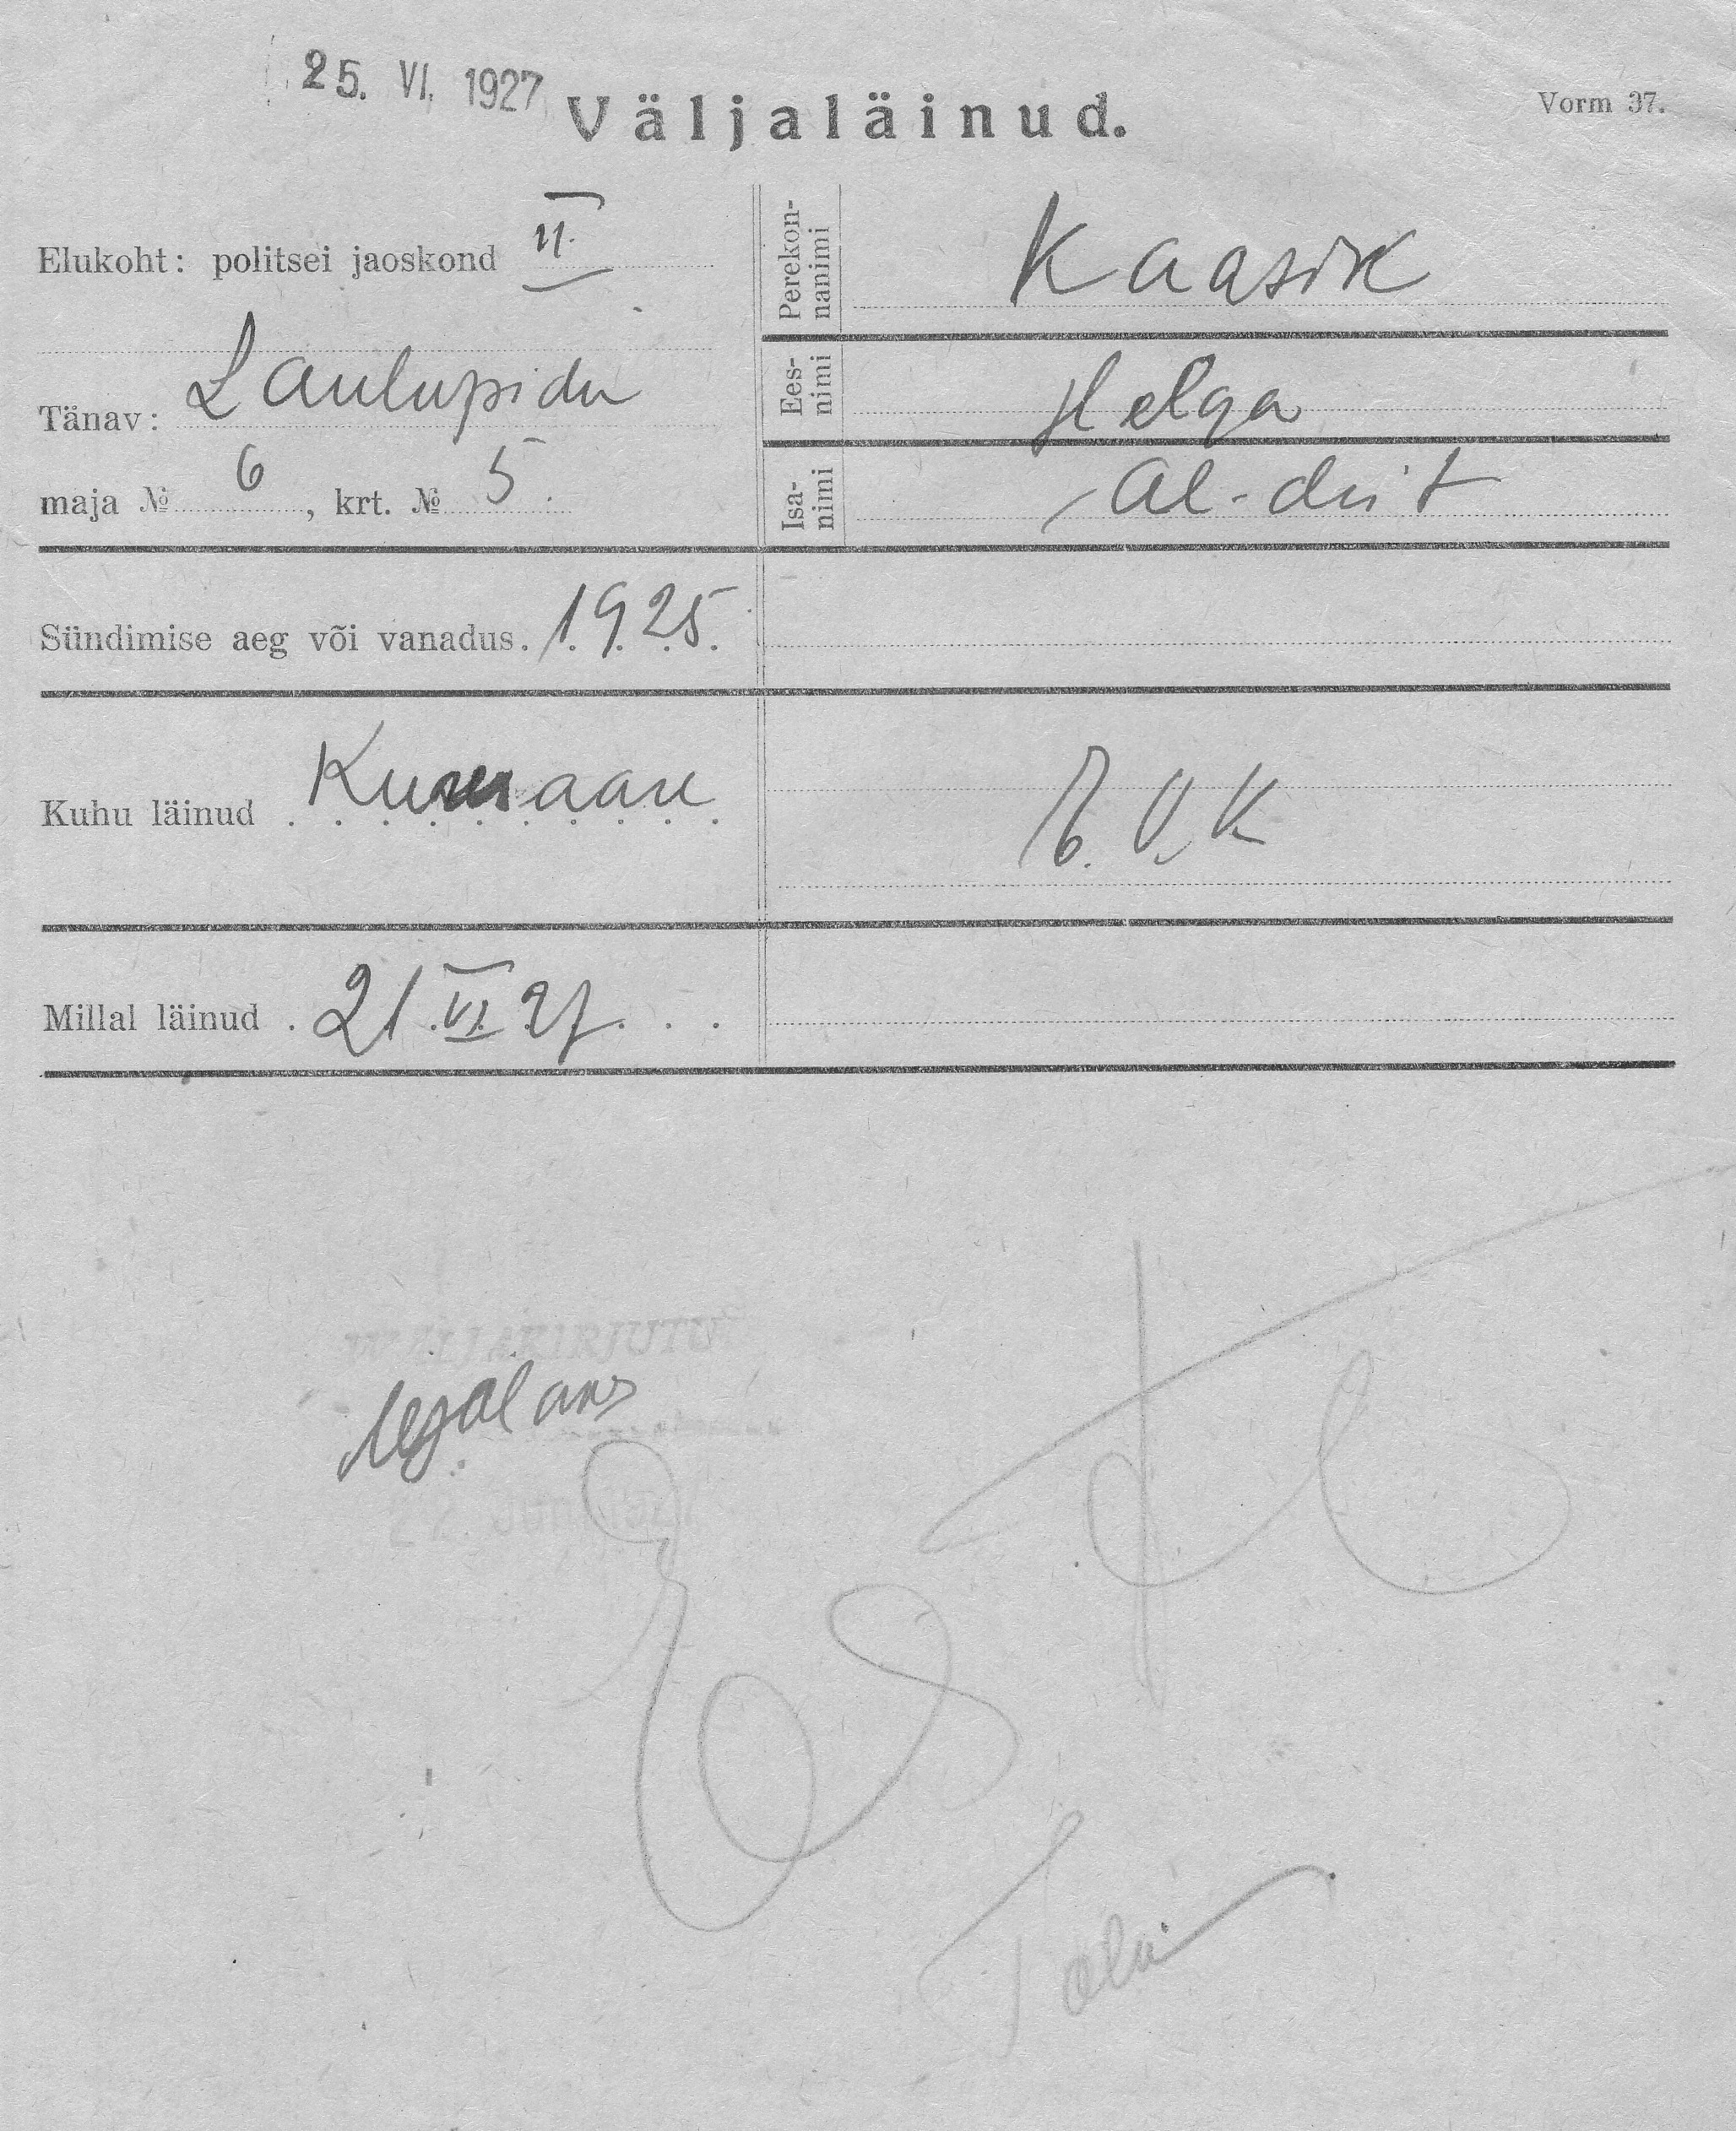 25. VI. 1927
Väljaläinud.
Vorm 37.
Elukoht: politsei jaoskond II
Tänav: Laulupidu
maja № 6, krt. № 5.
Perekon-
nanimi
Kaasik
Ees-
nimi
Helga
Isa-
nimi
Al-dri t
Sündimise aeg või vanadus. 1925.
Kuhu läinud
E. V. K
Millal läinud . 21. VI. 27. . .
WÄLJAKIRJUTUD